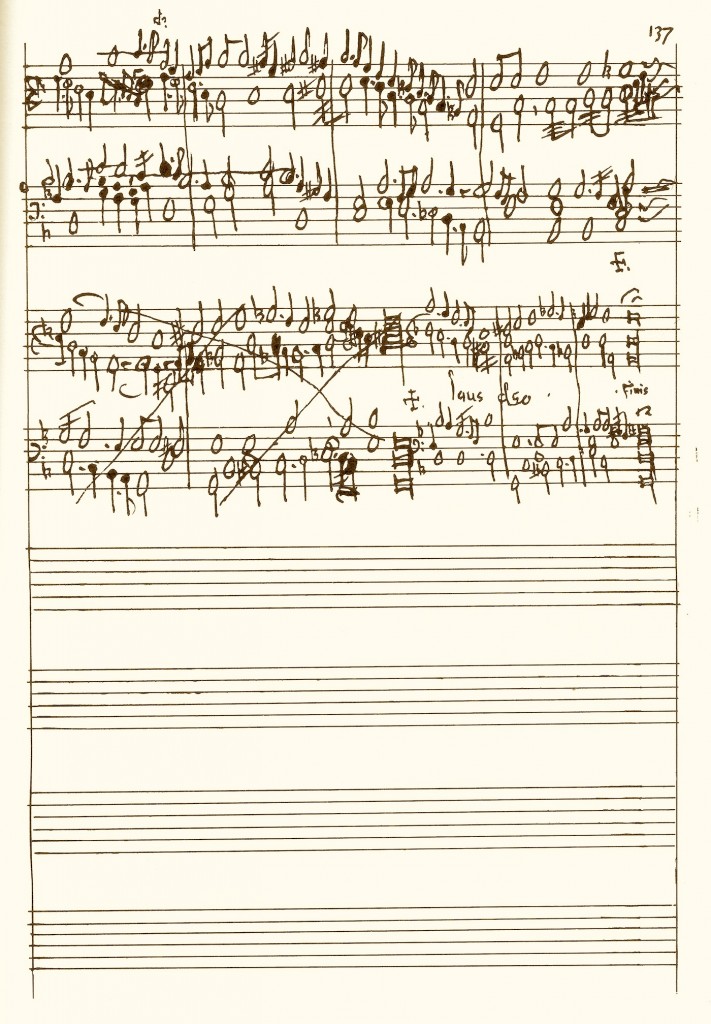 137
d?
laus deo.
Finis